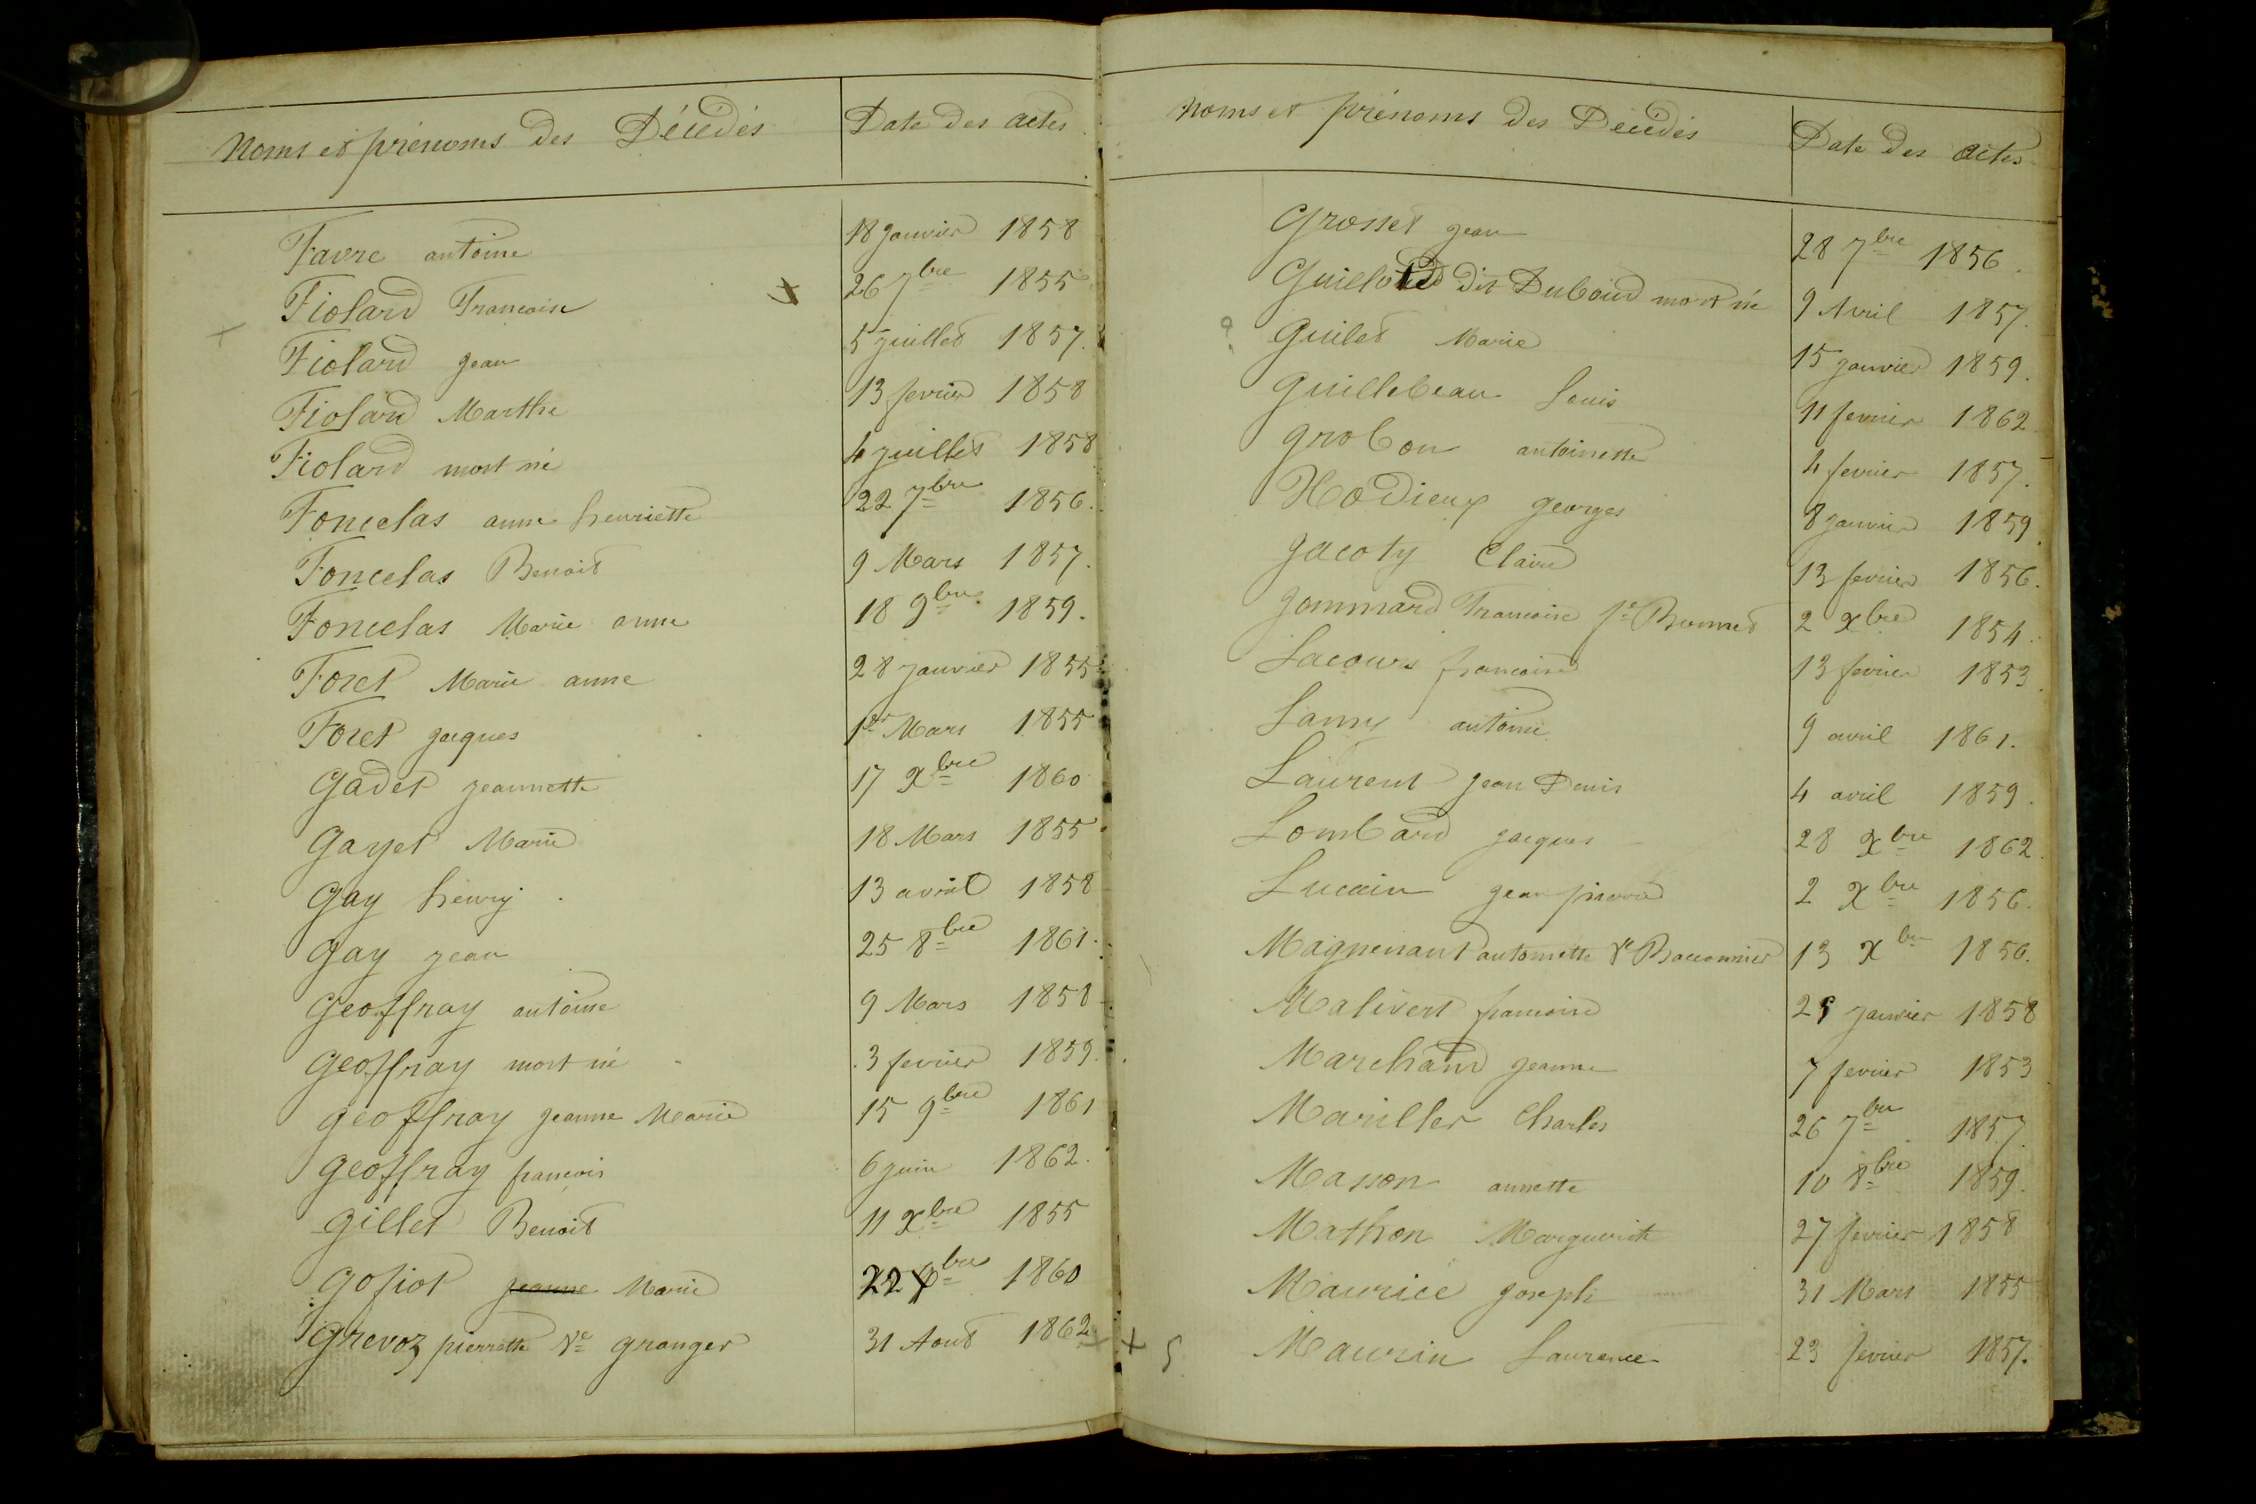 Noms et prénoms des Décédés Date des actes
Favre antoine 18 janvier 1858
Fiolard Francoise 26 7bre 1855
Fiolard jean 5 juillet 1857.
Fiolard Marthe 13 fevrier 1858
Fiolard mort né 4 juillet 1858
Foncelas anne henriette 22 7bre 1856.
Foncelas Benoit 9 Mars 1857.
Foncelas Marie anne 18 9bre 1859.
Foret Marie anne 28 janvier 1855
Foret jacques 1er Mars 1855
Gadet jeannette 17 Xbre 1860
Gayet Marie 18 Mars 1855
Gay henry 13 avril 1858
Gay jean 25 8bre 1861.
Geoffray antoine 9 Mars 1858
Geoffray mort né 3 fevrier 1859.
Geoffray jeanne Marie 15 9bre 1861
Geoffray francois 6 juin 1862.
Gillet Benoit 11 Xbre 1855
Gofiot jeanne Marie 22 bre 1860
Grevoz pierrette Ve Granger 31 Aout 1862
Noms et prénoms des Décédés Date des actes
Grosset jean 28 7bre 1856.
dit Duboud mort né 9 Avril 1857.
? Guilet Marie 15 janvier 1859.
Guillebeau Louis 11 fevrier 1862
Grobon antoinette 4 fevrier 1857.
Hodieux georges 8 janvier 1859
Jacoty Claire 13 fevrier 1856.
Jommard Francoise fe Bonnet 2 Xbre 1854.
Lacours francoise 13 fevrier 1853
Lamy antoine 9 avril 1861.
Laurent jean Denis 4 avril 1859.
Lombard jacques 28 Xbre 1862
Lucain jean pierre 2 Xbre 1856.
Magnenant antoinette Ve Baconnier 13 Xbre 1856.
Malivert francoise janvier 1858
Marchand jeanne 7 fevrier 1853
Mariller Charles 26 7bre 1857
Masson annette 10 8bre 1859.
Mathon Marguerite 27 fevrier 1858
Maurice joseph 31 Mars 1855
Maurin Laurence 23 fevrier 1857.